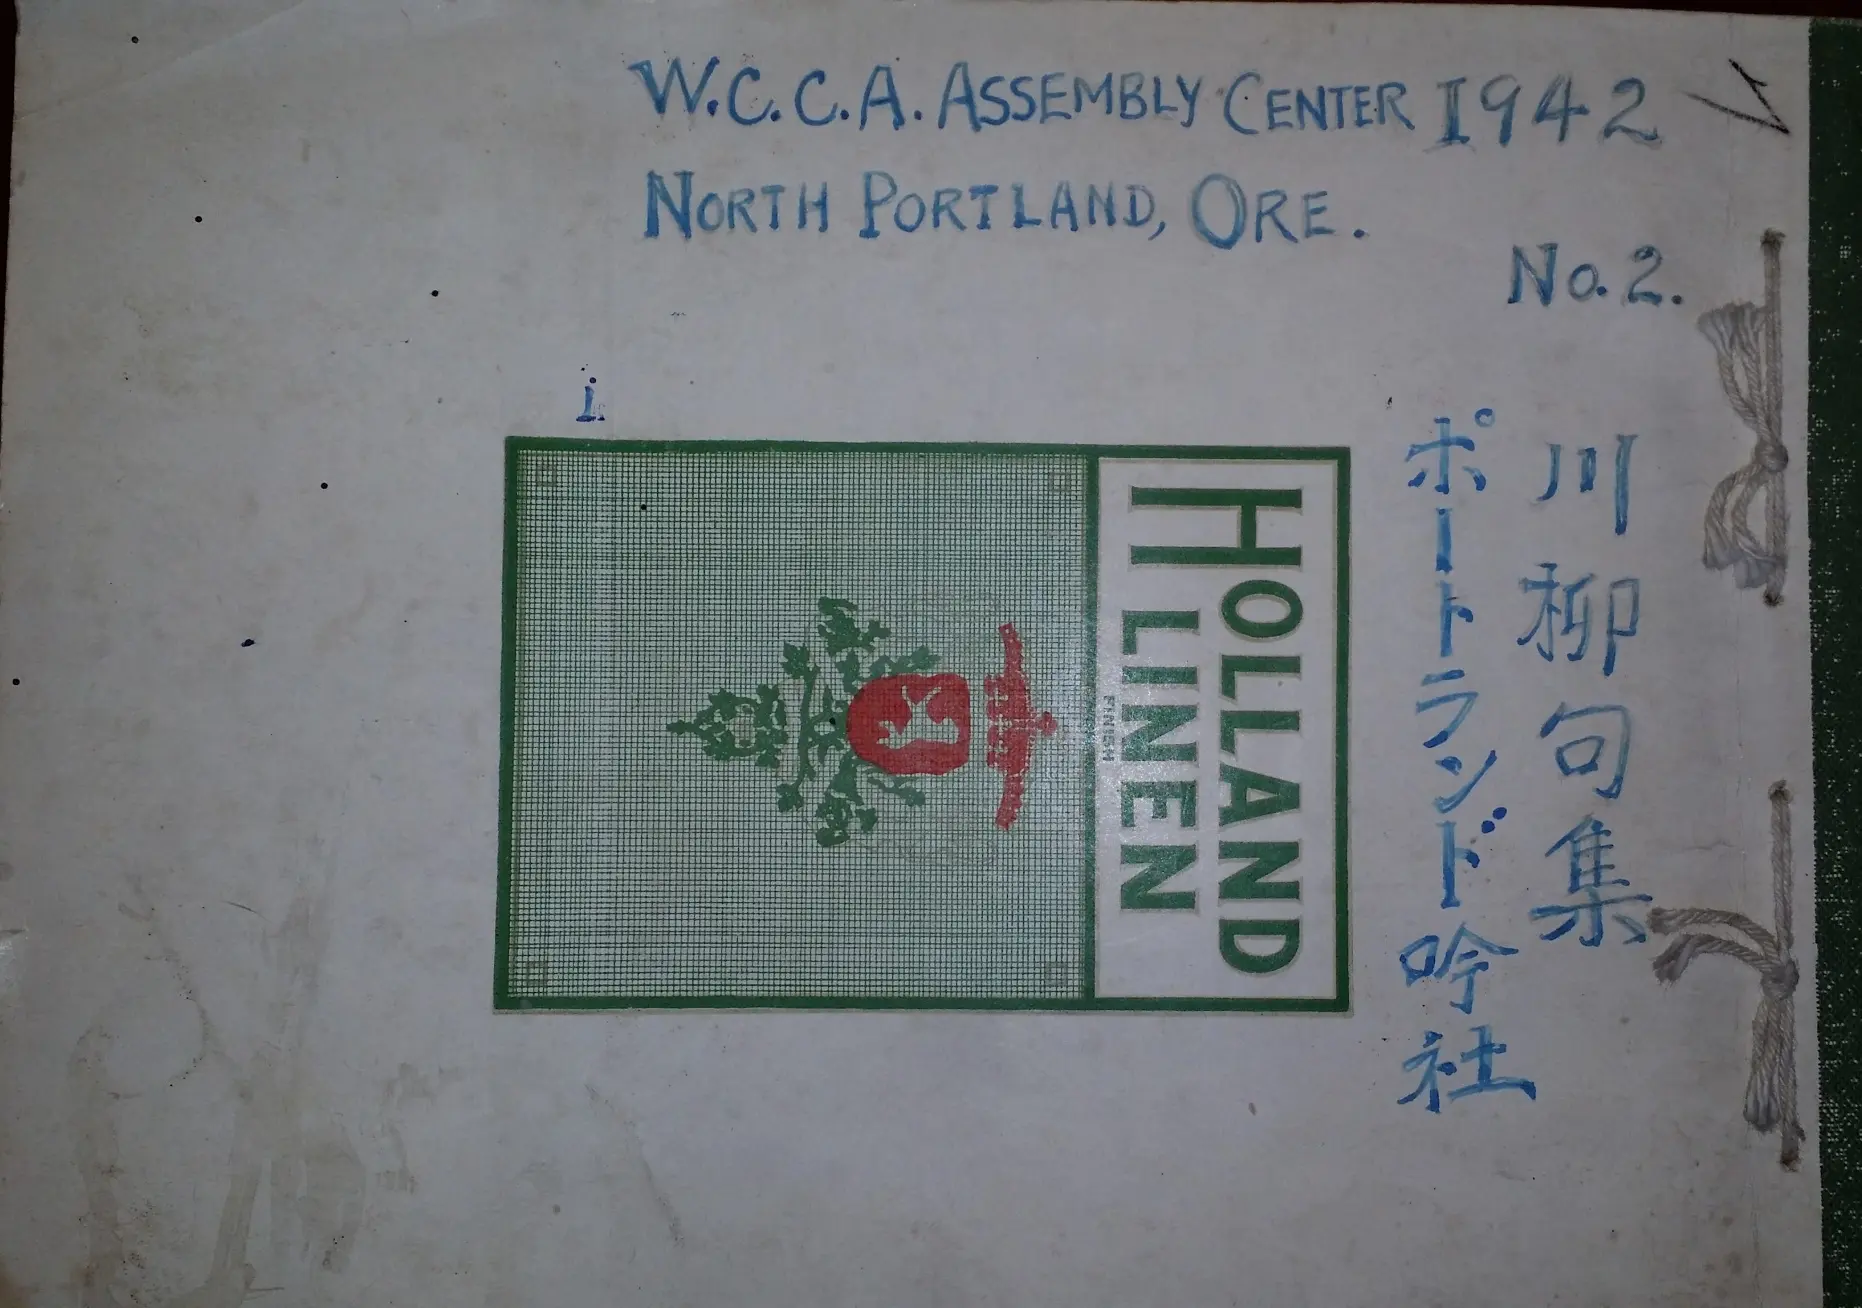 W.C.C.A. ASSEMBLY CENTER 1942
NORTH PORTLAND, ORE.
No. 2.
川柳句集
ポートランド吟社
i.
HOLLAND
LINEN
FINISH